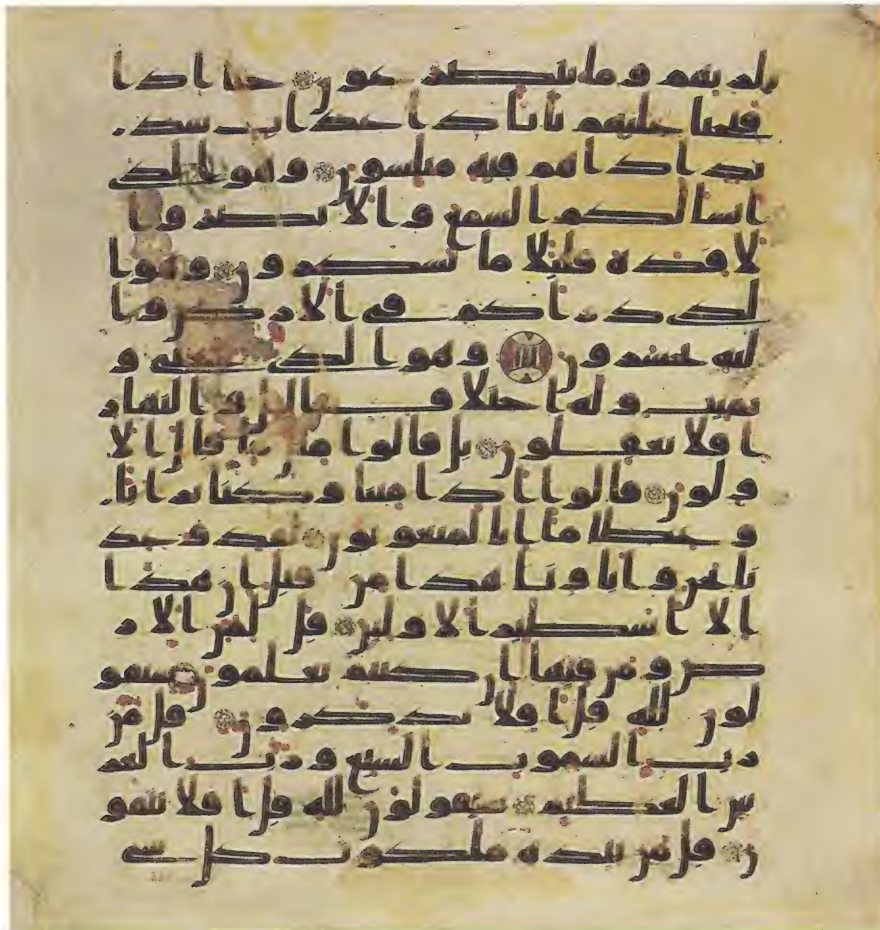 لربهم وما يتضرعون حتى اذا
فتحنا عليهم بابا ذا عذاب شد
يد اذا هم فيه مبلسون وهو الذى
انشا لكم السمع والابصر وا
لافدة قليلا ما تشكرون وهو ا
لذى ذراكم فى الارض وا
ليه تحشرون وهو الذى يحيى و
يميت وله اختلاف اليل والنهار
افلا تعقلون بل قالوا مثل ما قال الا
ولون قالوا اذا متنا وكنا ترابا
وعظاما انا لمبعوثون لقد وعد
نا نحن واباونا هذا من قبل ان هذا
الا اسطير الاولين قل لمن الار
ض ومن فيها ان كنتم تعلمون سيقو
لون لله قل افلا تذكرون قل من
رب السموت السبع ورب العر
ش العظيم سيقولون لله قل افلا تتقو
ن قل من بيده ملكوت كل شى